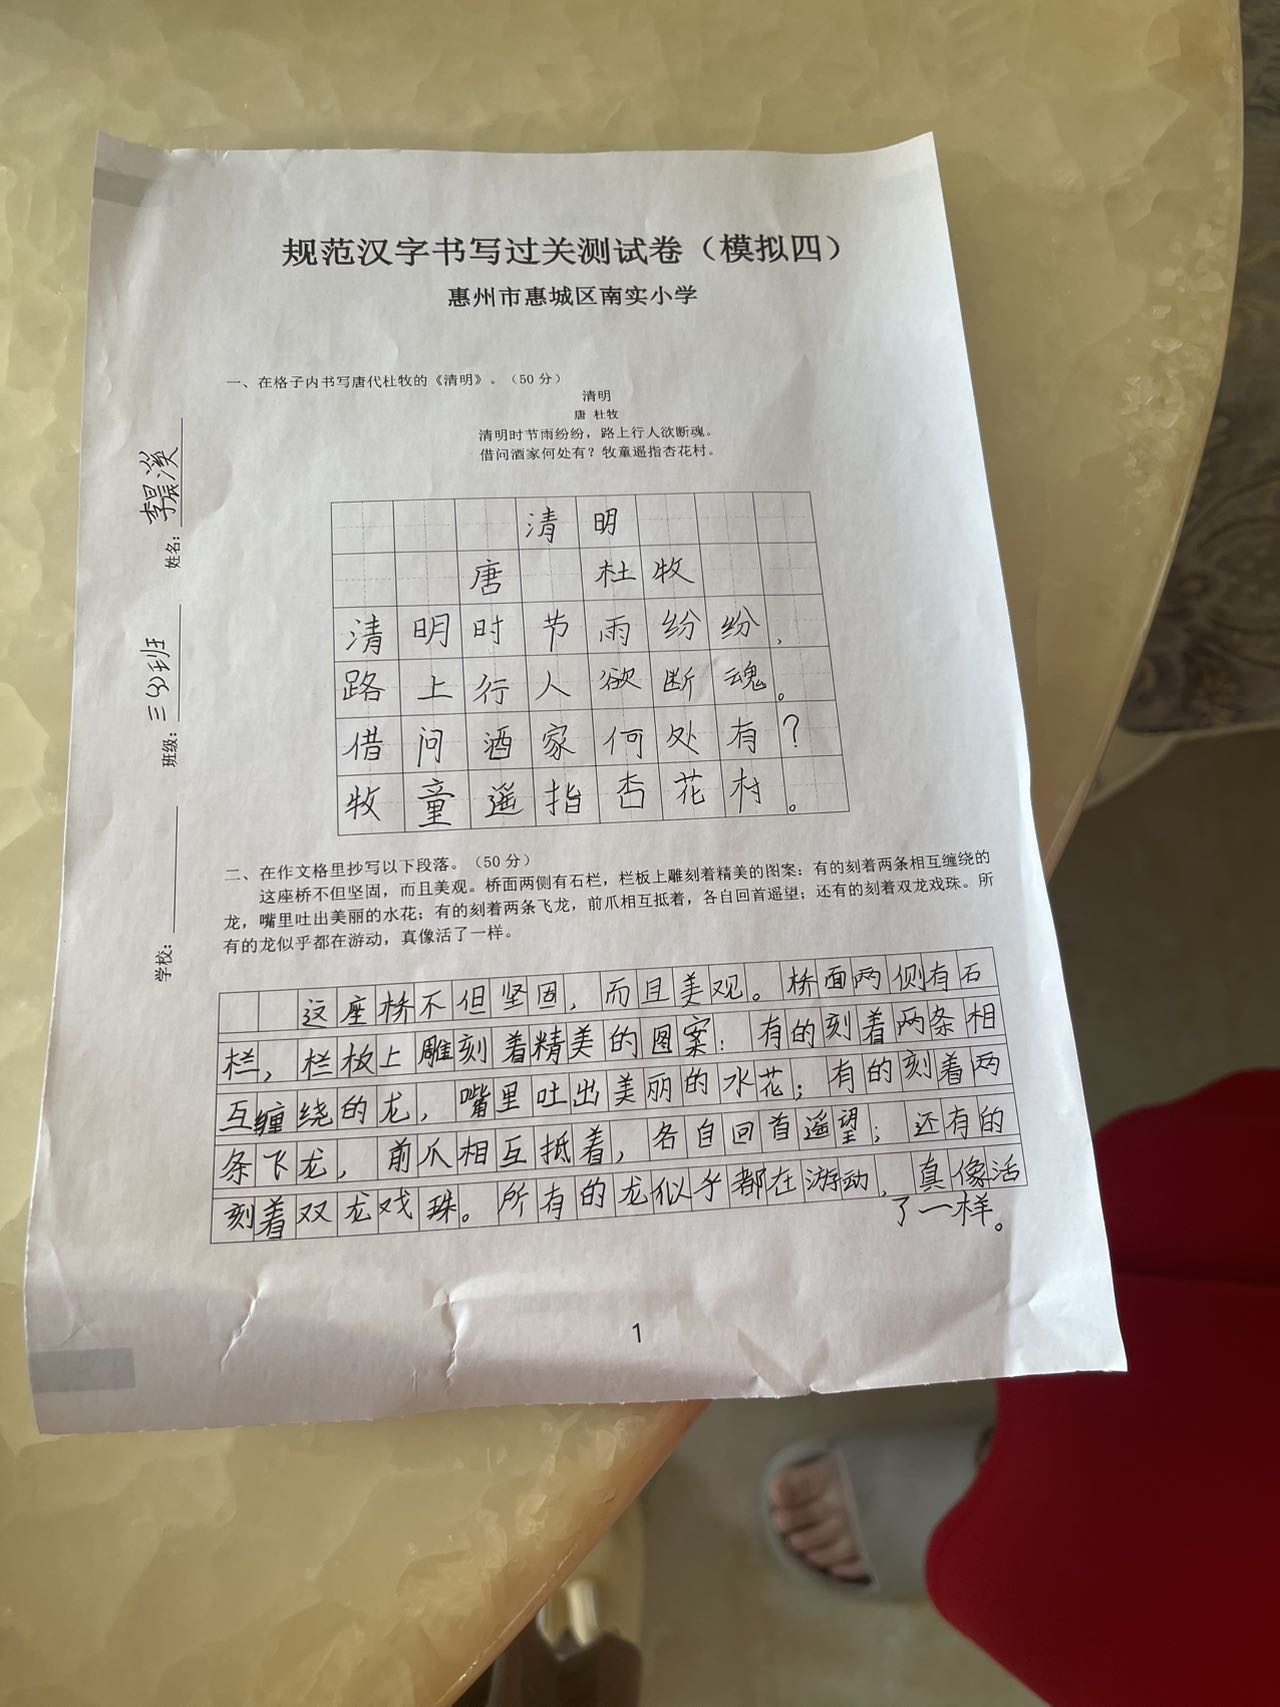 规范汉字书写过关测试卷（模拟四）
惠州市惠城区南实小学
学校：
班级：三(3)班
姓名：李晨溪
一、在格子内书写唐代杜牧的《清明》。（50分）
清明
唐 杜牧
清明时节雨纷纷，路上行人欲断魂。
借问酒家何处有？牧童遥指杏花村。
清明
唐 杜牧
清明时节雨纷纷，
路上行人欲断魂。
借问酒家何处有？
牧童遥指杏花村。
二、在作文格里抄写以下段落。（50分）
这座桥不但坚固，而且美观。桥面两侧有石栏，栏板上雕刻着精美的图案：有的刻着两条相互缠绕的
龙，嘴里吐出美丽的水花；有的刻着两条飞龙，前爪相互抵着，各自回首遥望；还有的刻着双龙戏珠。所
有的龙似乎都在游动，真像活了一样。
这座桥不但坚固，而且美观。桥面两侧有石
栏，栏板上雕刻着精美的图案：有的刻着两条相
互缠绕的龙，嘴里吐出美丽的水花；有的刻着两
条飞龙，前爪相互抵着，各自回首遥望；还有的
刻着双龙戏珠。所有的龙似乎都在游动，真像活
了一样。
1